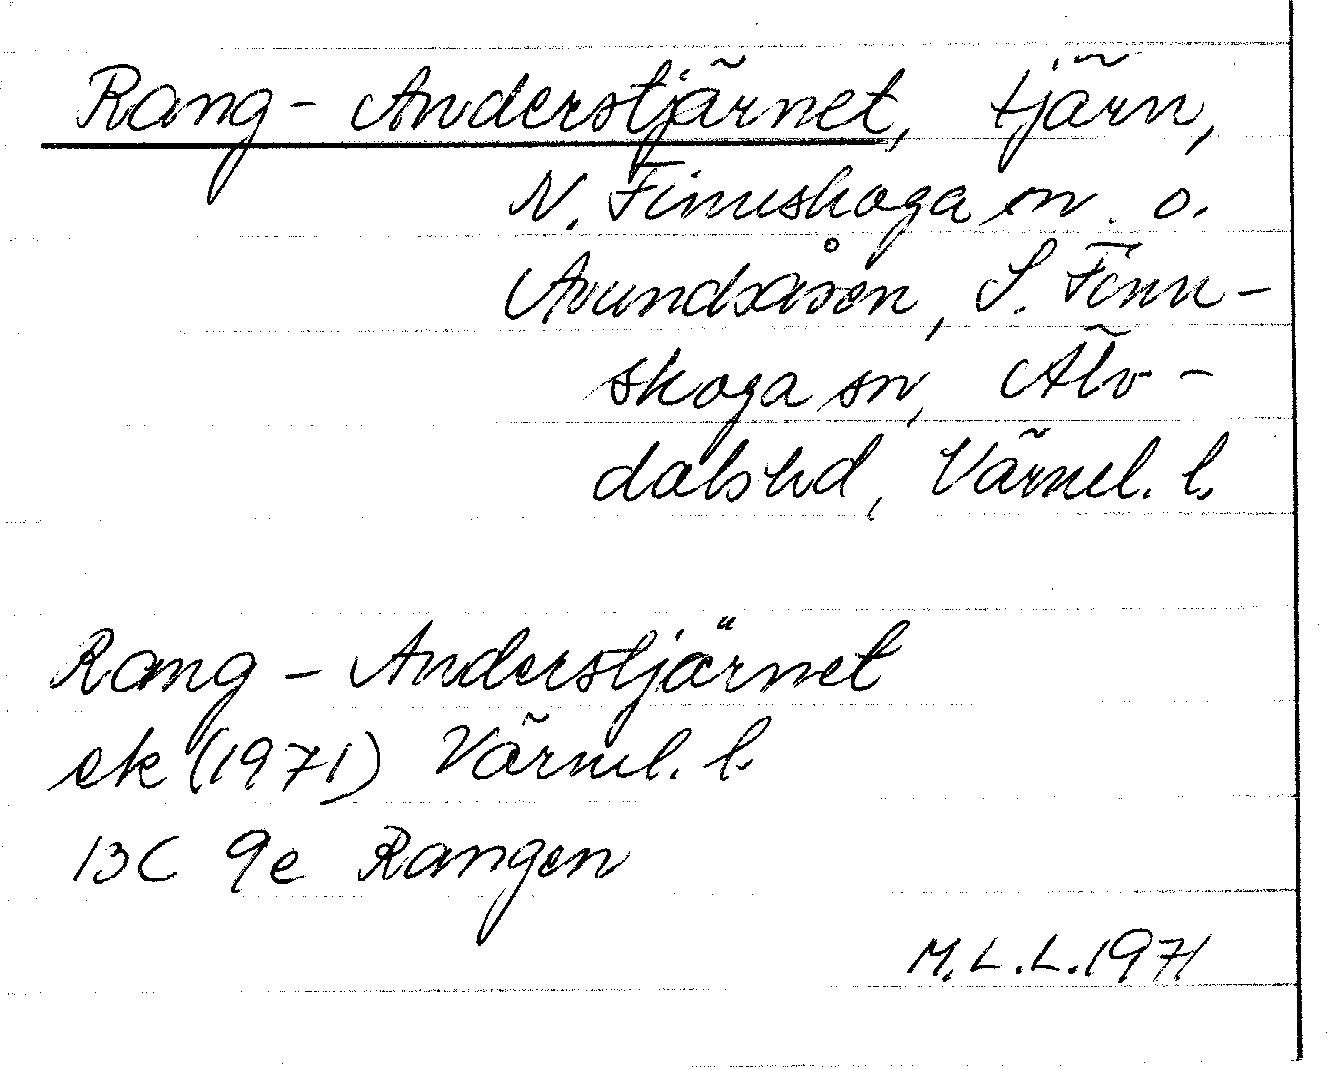 Rang-Anderstjärnet, tjärn,
N. Finnskoga sn o.
Avundsåsen, S. Finn-
skoga sn, Älv-
dals hd, Värml. l.
Rang-Anderstjärnet
ek (1971) Värml. l.
13C 9e Rangen
M.L.L. 1971